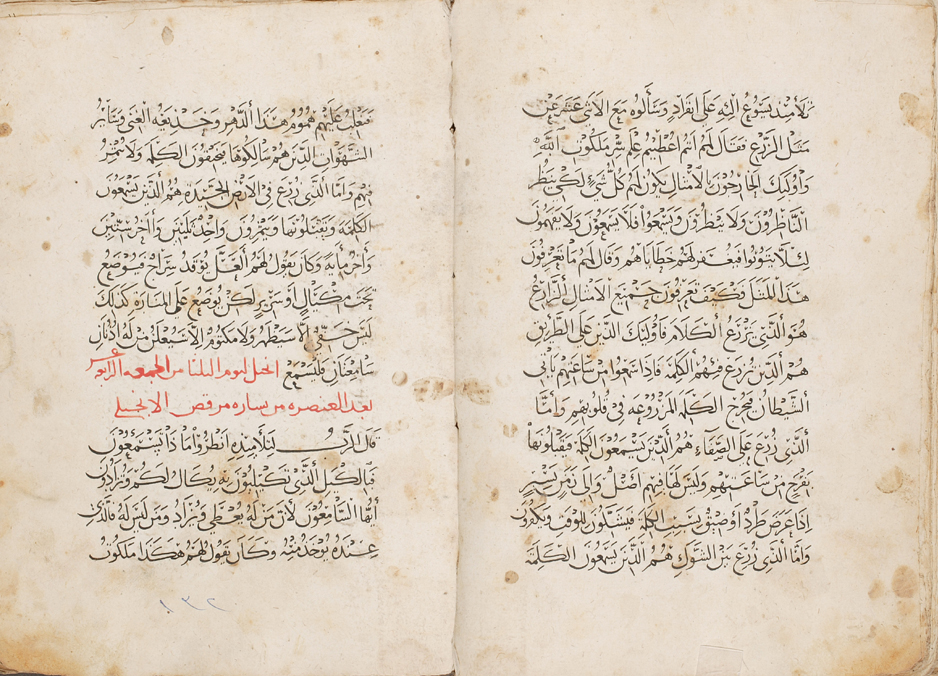 تلاميذ يسوع اليه على انفراد وسألوه مع الاثني عشر عن
مثل الزرع فقال لهم انتم اعطيتم علم سر ملكوت الله
واوليك الخارجون بالامثال يكون لهم كل شي لكي ينظر
الناظرون ولا ينظرون ويسمعوا فلا يسمعون ولا يفهمون
ليلا يتوبوا فيغفر لهم خطاياهم وقال لهم ما تعرفون
هذا المثل فكيف تعرفون جميع الامثال الزارع
هو الذي يزرع الكلام فاوليك الذين على الطريق
هم الذين تزرع فيهم الكلمة فاذا سمعوا من ساعتهم ياتي
الشيطان فيخرج الكلمة المزروعة في قلوبهم واما
الذي زرع على الصفاء هم الذين يسمعون الكلمة فيقبلونها
بفرح من ساعتهم وليس لها فيهم اصل والى زمن يسير
اذا عرض طرد او ضيق بسبب الكلمة فيشكون للوقت ويكفرون
واما الذي زرع بين الشوك فهم الذين يسمعون الكلمة
فتغلب عليهم هموم هذا الدهر وخديعة الغنى وساير
الشهوات الذين هم سالكوها يخنقون الكلمة ولا تثمر
فيهم واما الذي زرع في الارض الجيدة هم الذين يسمعون
الكلمة ويقبلونها ويثمرون واحد ثلثين واخر ستين
واخر ماية وكان يقول لهم العل يوقد سراج فيوضع
تحت مكيال او سرير لكن يوضع على المنارة كذلك
ليس خفي الا سيظهر ولا مكتوم الا سيعلن من له اذنان
سامعتان فليسمع انجيل ليوم الثلثا من الجمعه الرابعه عشر
بعد العنصره من بشاره مرقص الانجيلي
قال الرب لتلاميذه انظروا ماذا تسمعون
فبالكيل الذي تكيلون به يكال لكم وتزادون
ايها السامعون لان من له يعطى ويزاد ومن ليس له فالذي
عنده يوخذ منه وكان يقول لهم هكذا ملكوت